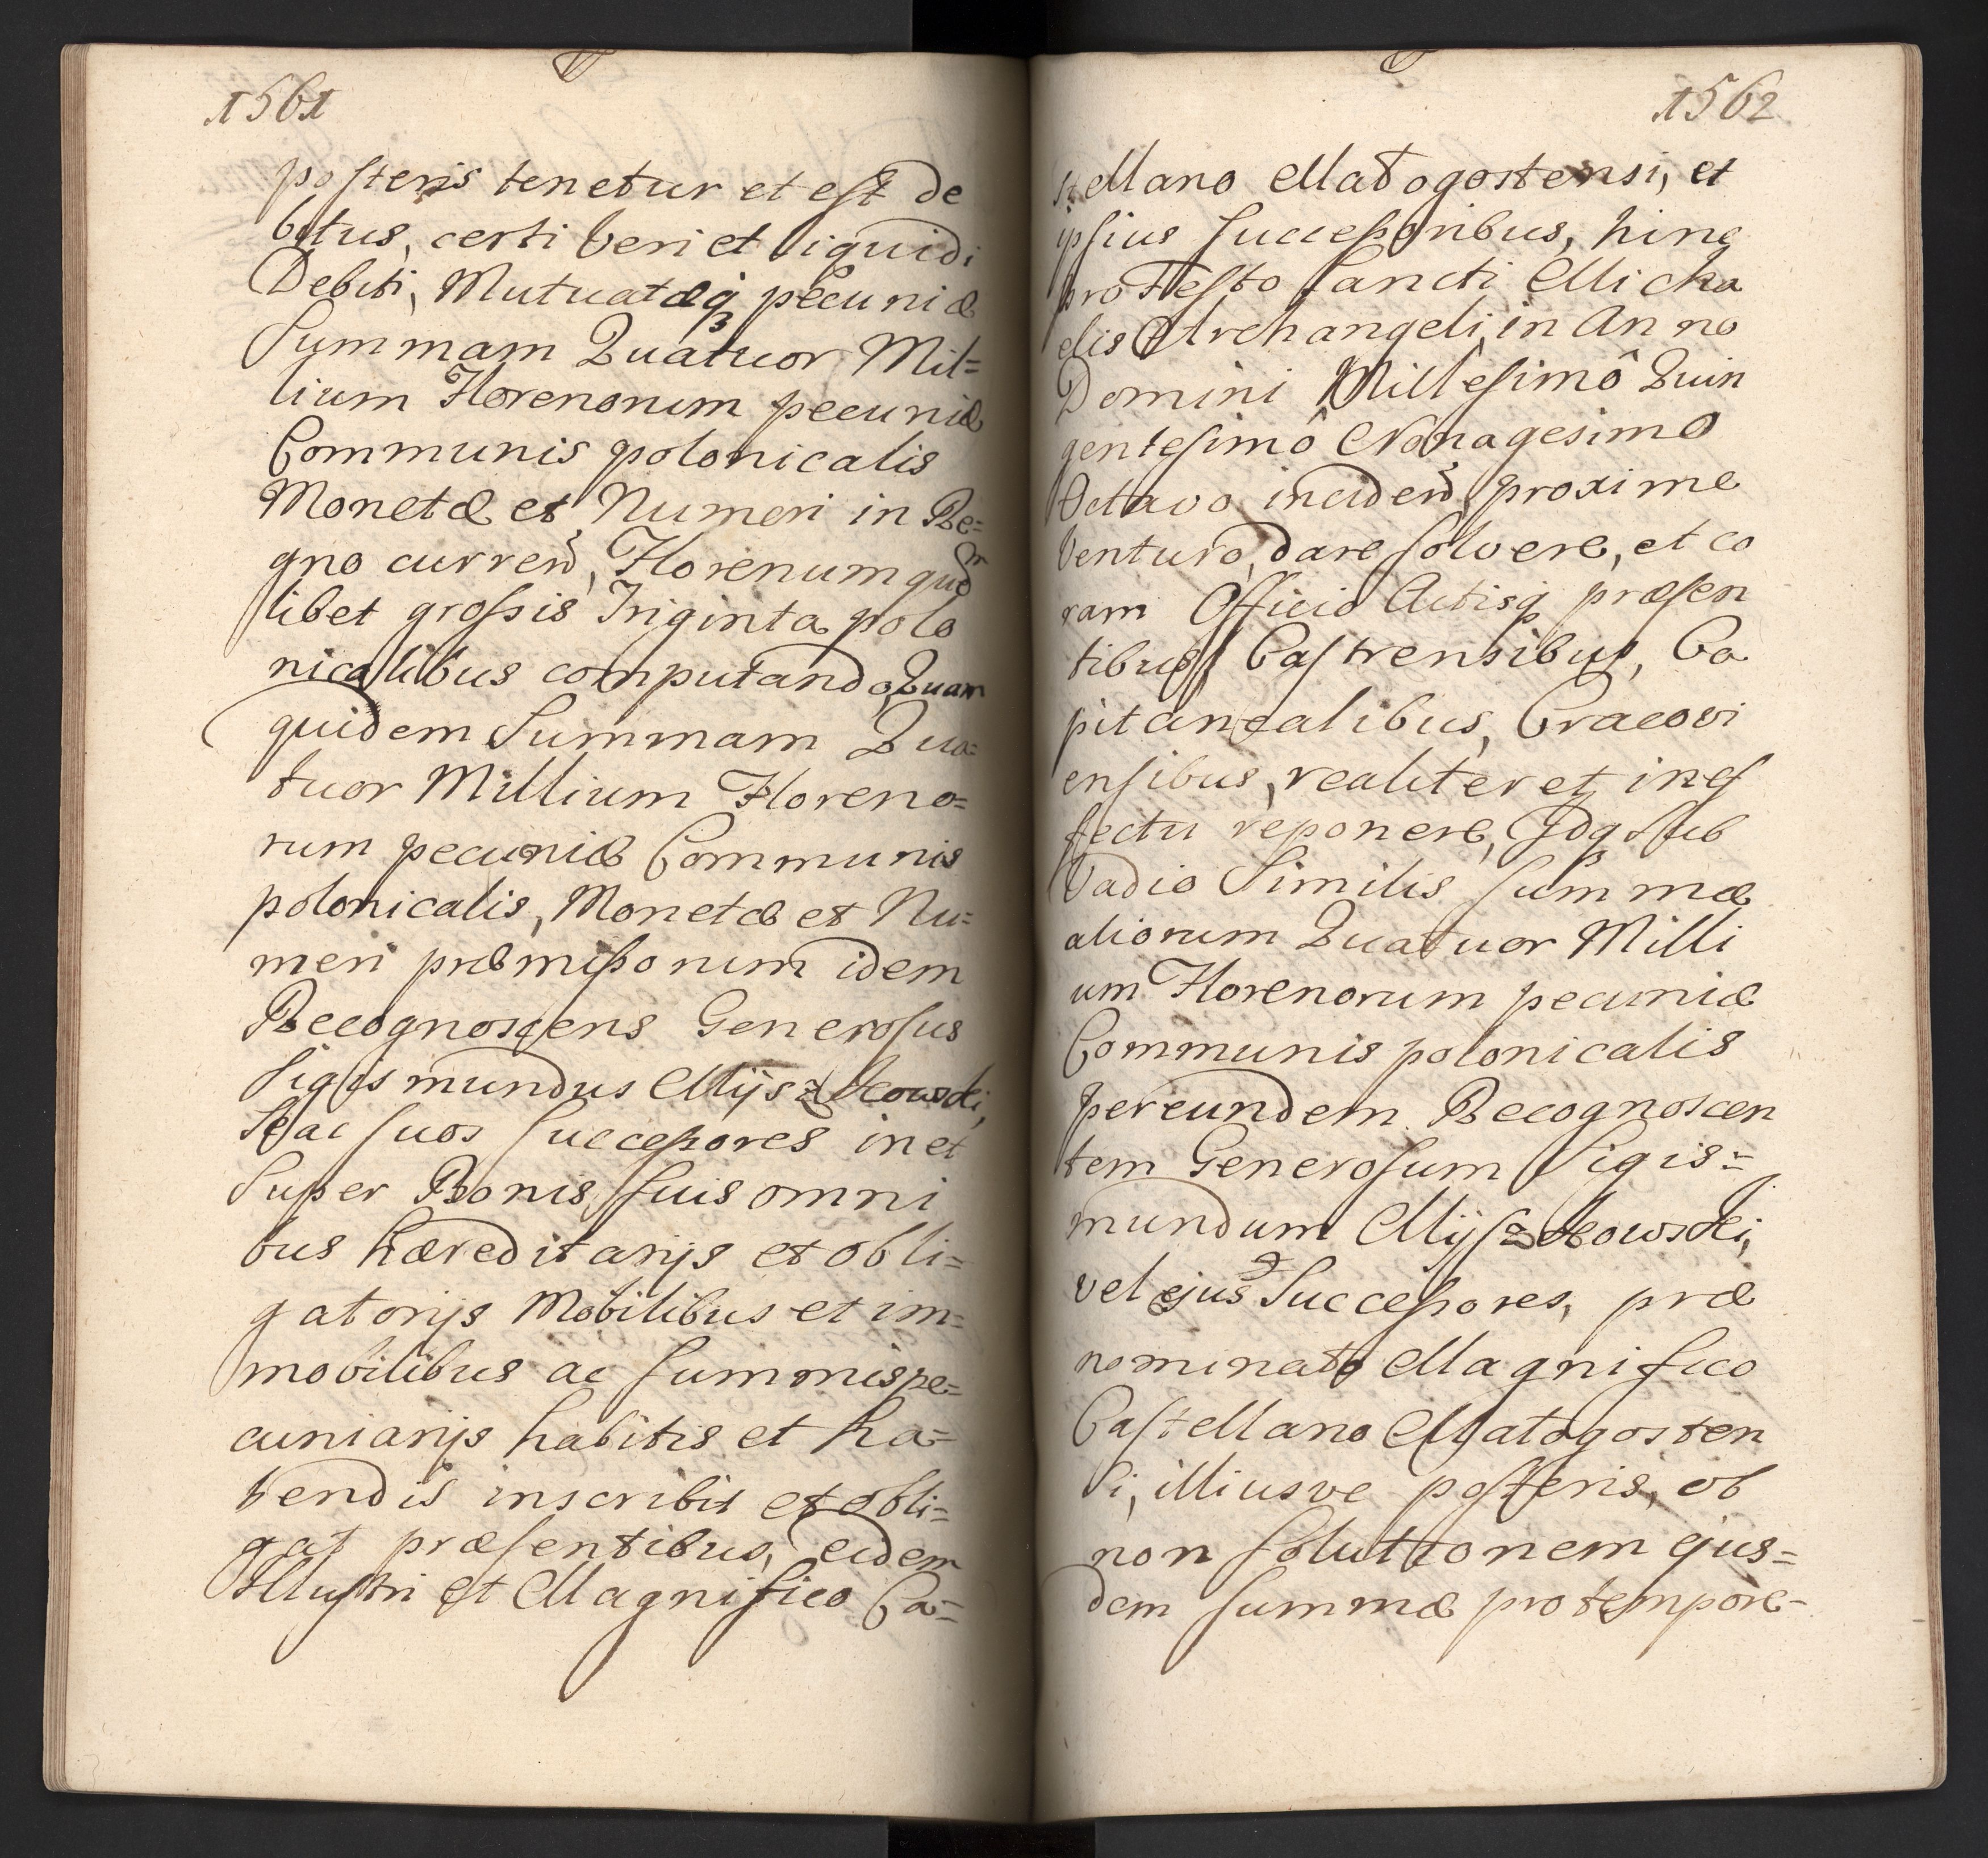 1561
posteris tenetur et est de
bitus, certi veri et liquidi
Debiti, Mutuatæq pecuniæ
Summam Quatuor Mil=
lium Florenorum pecuniæ
Communis polonicalis
Monetæ et Numeri in Re=
gno curren, Florenum quem
libet grossis Triginta polo
nicalibus computando, Quam
quidem Summam Qua=
tuor Millium Floreno=
rum pecuniæ Communis
polonicalis, Monetæ et Nu=
meri præmissorum idem
Recognoscens Generosus
Sigismundus Myszkowski,
Se ac suos successores in et
Super Bonis suis omni
bus hæreditarijs et obli=
gatorijs Mobilibus et im=
mobilibus ac summis pe=
cuniarijs habitis et ha=
bendis inscribit et obli=
gat præsentibus, eidem
Illustri et Magnifico Ca=
1562
stellano Małogostensi, et
ipsius successoribus, hinc
pro Festo Sancti Micha
elis Archangeli, in Anno
Domini Millesimô Quin
gentesimô Nonagesimo
Octavo inciden, proxime
venturo, dare solvere, et co
ram Officio Actisq præsen
tibus Castrensibus, Ca
pitanealibus, Cracovi
ensibus, realiter et in ef
fectu reponere, Idq sub
Vadio Similis summæ
aliorum Quatuor Milli
um Florenorum pecuniæ
Communis polonicalis
per eundem Recognoscen
tem Generosum Sigis=
mundum Myszkowski,
vel ejus Successores, præ
nominato Magnifico
Castellano Małogosten
si, illiusve posteris, ob
non solutionem ejus=
dem summæ pro tempore=